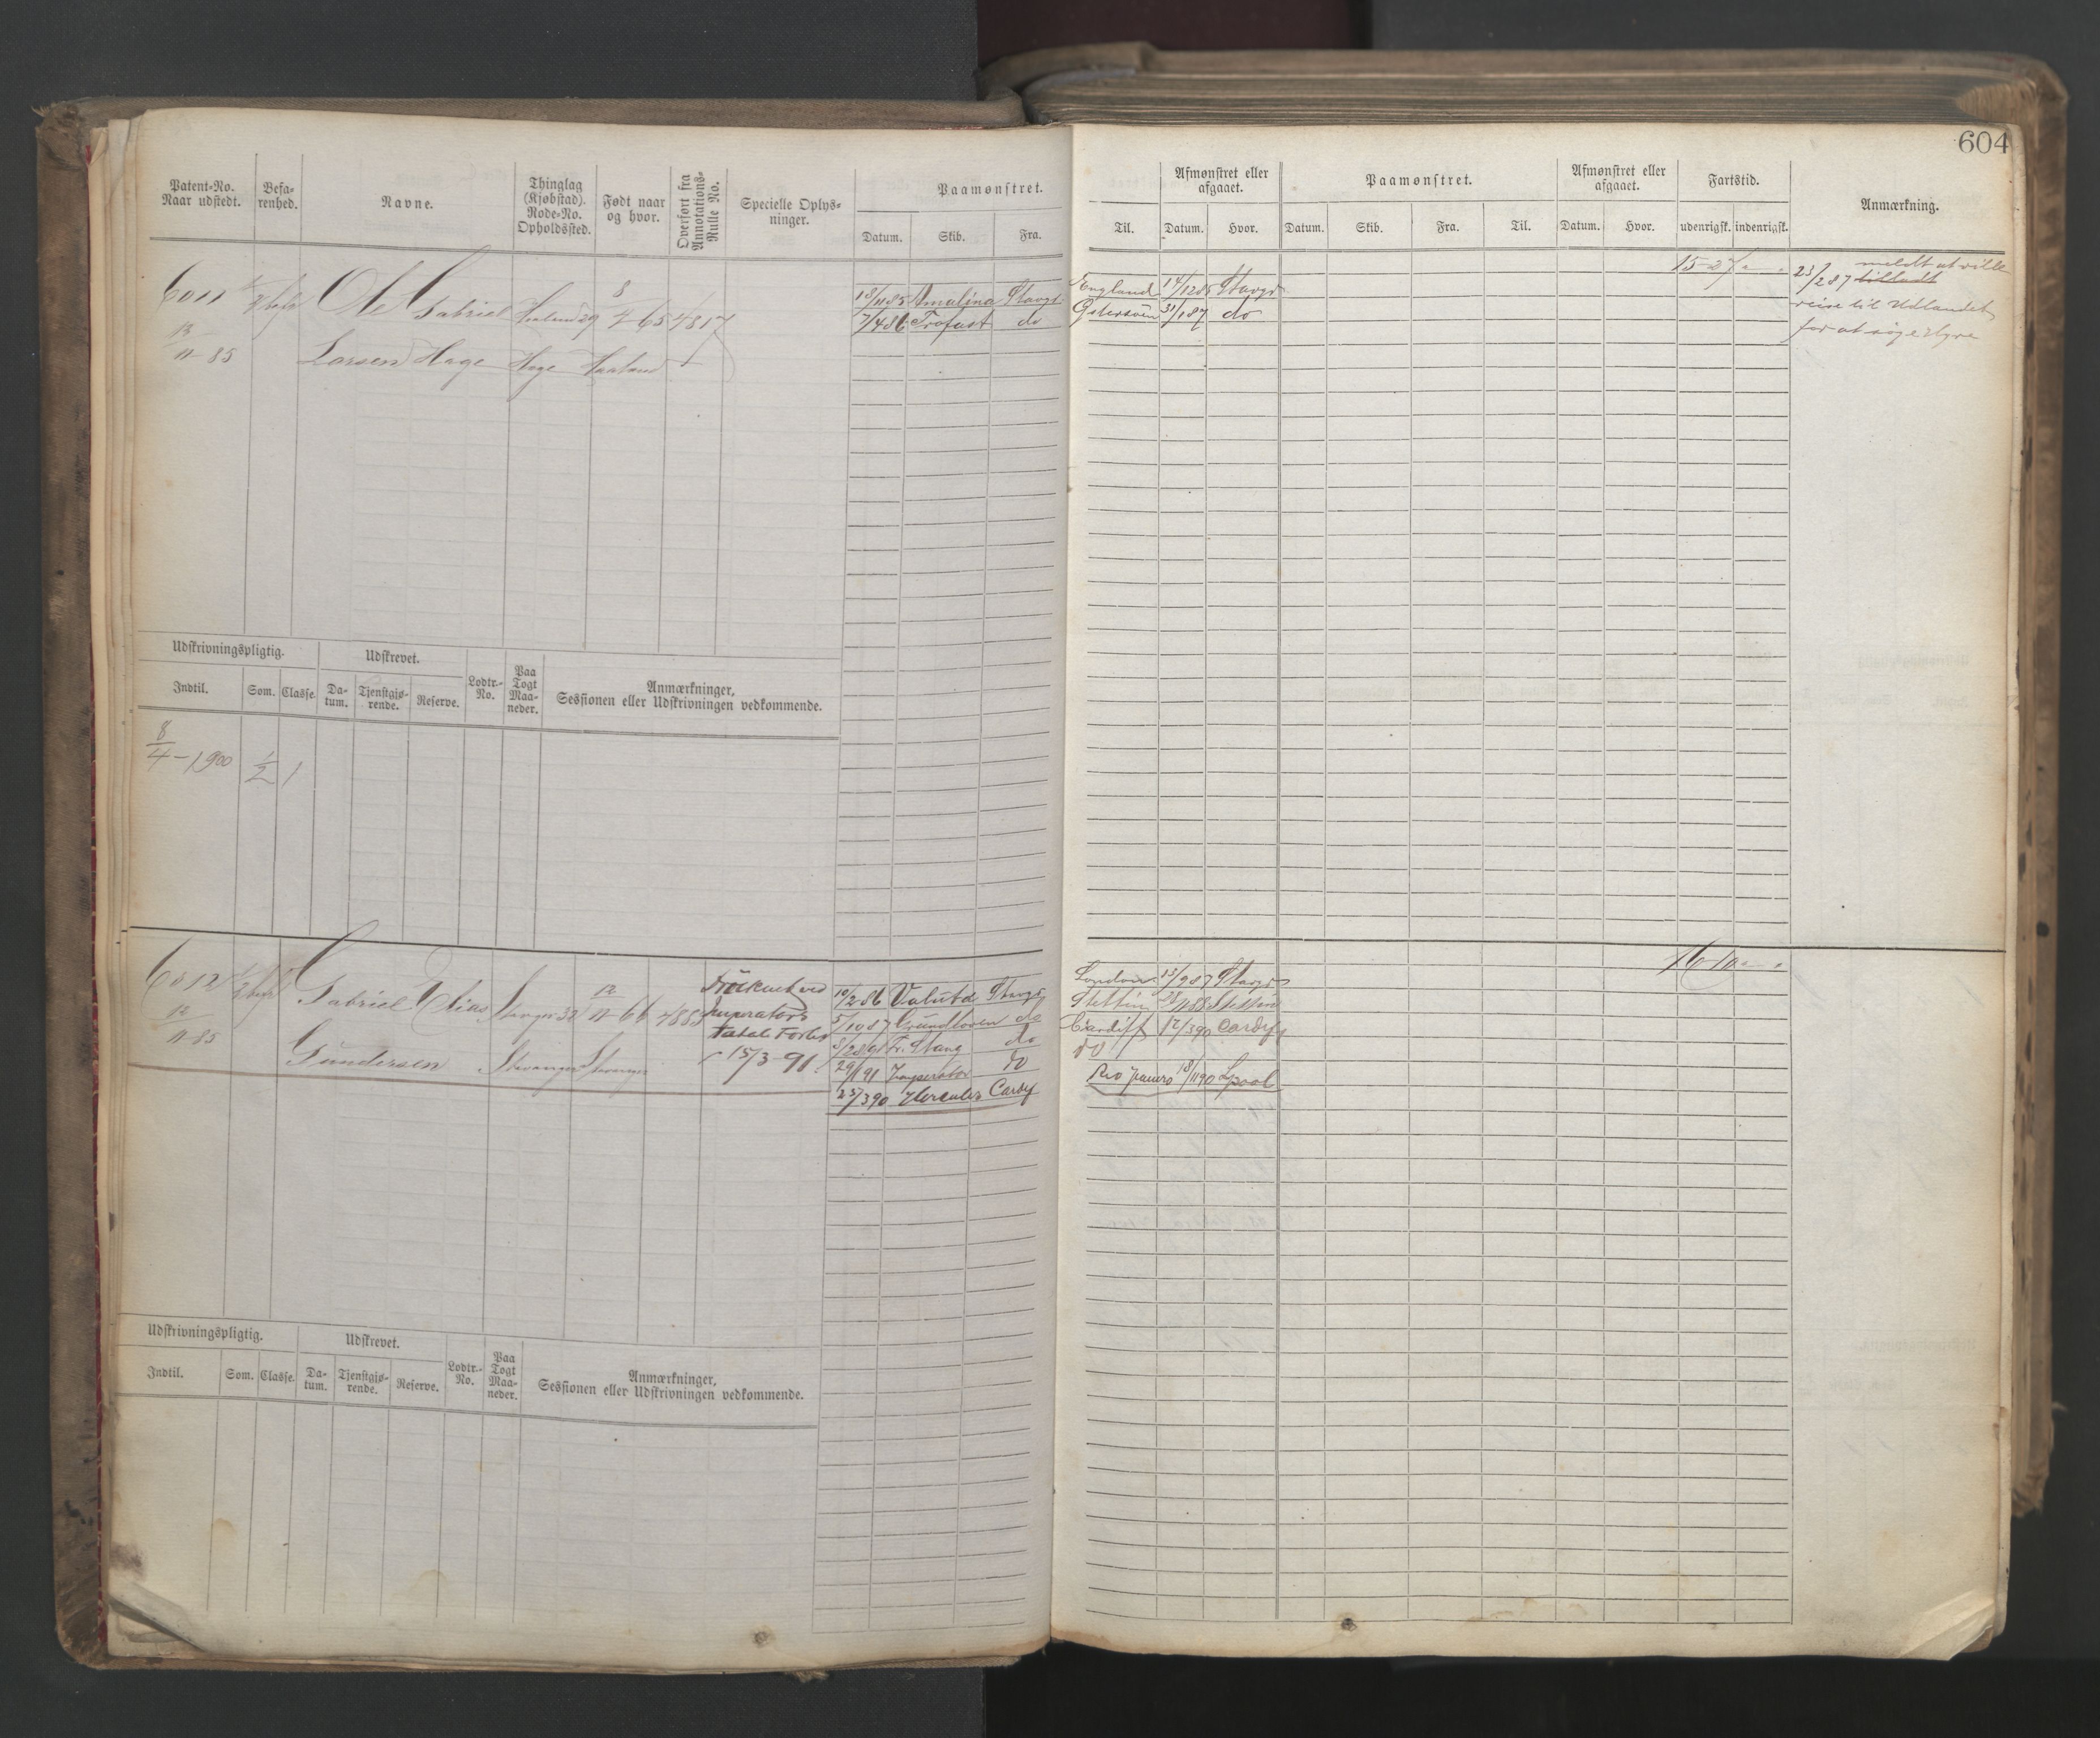 604
Patent-No. Naar udstedt.
Befa-renhed.
Navne.
Thinglag (Kjøbstad). Rode-No. Opholdssted.
Født naar og hvor.
Overført fra Annotations-Rulle No.
Specielle Oplys-ninger.
Paamønstret.
Datum. Skib. Fra.
Til.
Afmønstret eller afgaaet.
Datum. Hvor.
Paamønstret.
Datum. Skib. Fra. Til.
Afmønstret eller afgaaet.
Datum. Hvor.
Fartstid.
udenrigsk. indenrigsk.
Anmærkning.
6011 1/2 befr Ole Gabriel 29 8/4 65 4817
13/11 85 Larsen Hage Hage Haaland
18/11 85 Amalina Stavgr England 14/12 85 Stavgr
7/4 86 Trofast do Østersøen 31/1 87 do
15-27
23/2 87 meldt at ville
tilladt
reise til Udlandet
for at søge Hyre
Udskrivningspligtig.
Indtil. Som. Classe.
Udskrevet.
Da-tum. Tjenstgjø-rende. Reserve.
Lodtr.-No.
Paa Togt Maa-neder.
Anmærkninger, Sessionen eller Udskrivningen vedkommende.
8/4-1900 1/2 1
6012 1/2 befr Gabriel Elias Stavanger 32 12/11 66 4883
12/11 85 Gundersen Stavanger Stavanger
Druknet ved
Imperators
total Forlis
15/3-91.
10/2 86 Valuta Stavgr London 13/9 87 Stavgr
5/10 87 Grundloven do Stettin 88 Stettin
8/2 89 Fr. Stang do Cardiff 12/3 90 Cardiff
29/1 91 Imperator do do
25/3 90 Hercules Cardf Rio Janeiro 18/11 90 Lpool
16 10
Udskrivningspligtig.
Indtil. Som. Classe.
Udskrevet.
Da-tum. Tjenstgjø-rende. Reserve.
Lodtr.-No.
Paa Togt Maa-neder.
Anmærkninger, Sessionen eller Udskrivningen vedkommende.